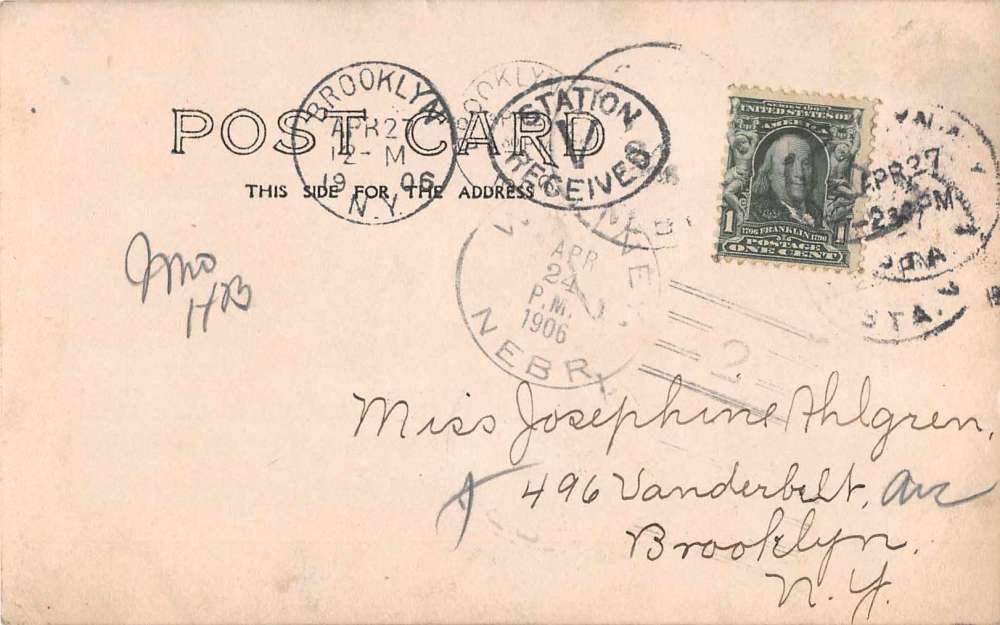 POST CARD
THIS SIDE FOR THE ADDRESS
BROOKLYN
APR 27
12- M
1906
N.Y.
STATION
V
RECEIVED
SERIES 1902
UNITED STATES OF
AMERICA
1
1706 FRANKLIN 1790
POSTAGE
ONE CENT
APR 27
2 30 PM
STA.
APR
24
P.M.
1906
NEBR
2
HB
Miss Josephine Ahlgren,
496 Vanderbilt, Ave
Brooklyn.
N.Y.